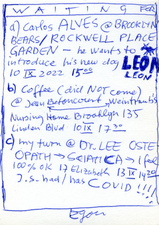 WAITING FOR
a) Carlos ALVES @ BROOKLYN
BEARS/ROCKWELL PLACE
GARDEN – he wants to
introduce his new dog LEON
10 IX 2022 15:00 LEON
b) Coffee (did NOT come)
@ Jean Betancourt, Weintraub's
Nursing Home Brooklyn 135
Linden Blvd 10 IX 17 30
c) my turn @ Dr. LEE OSTE-
OPATH → SCIATICA → I feel
100% OK 17 Elizabeth 13 IX 14
J.S. had/has COVID !!!!